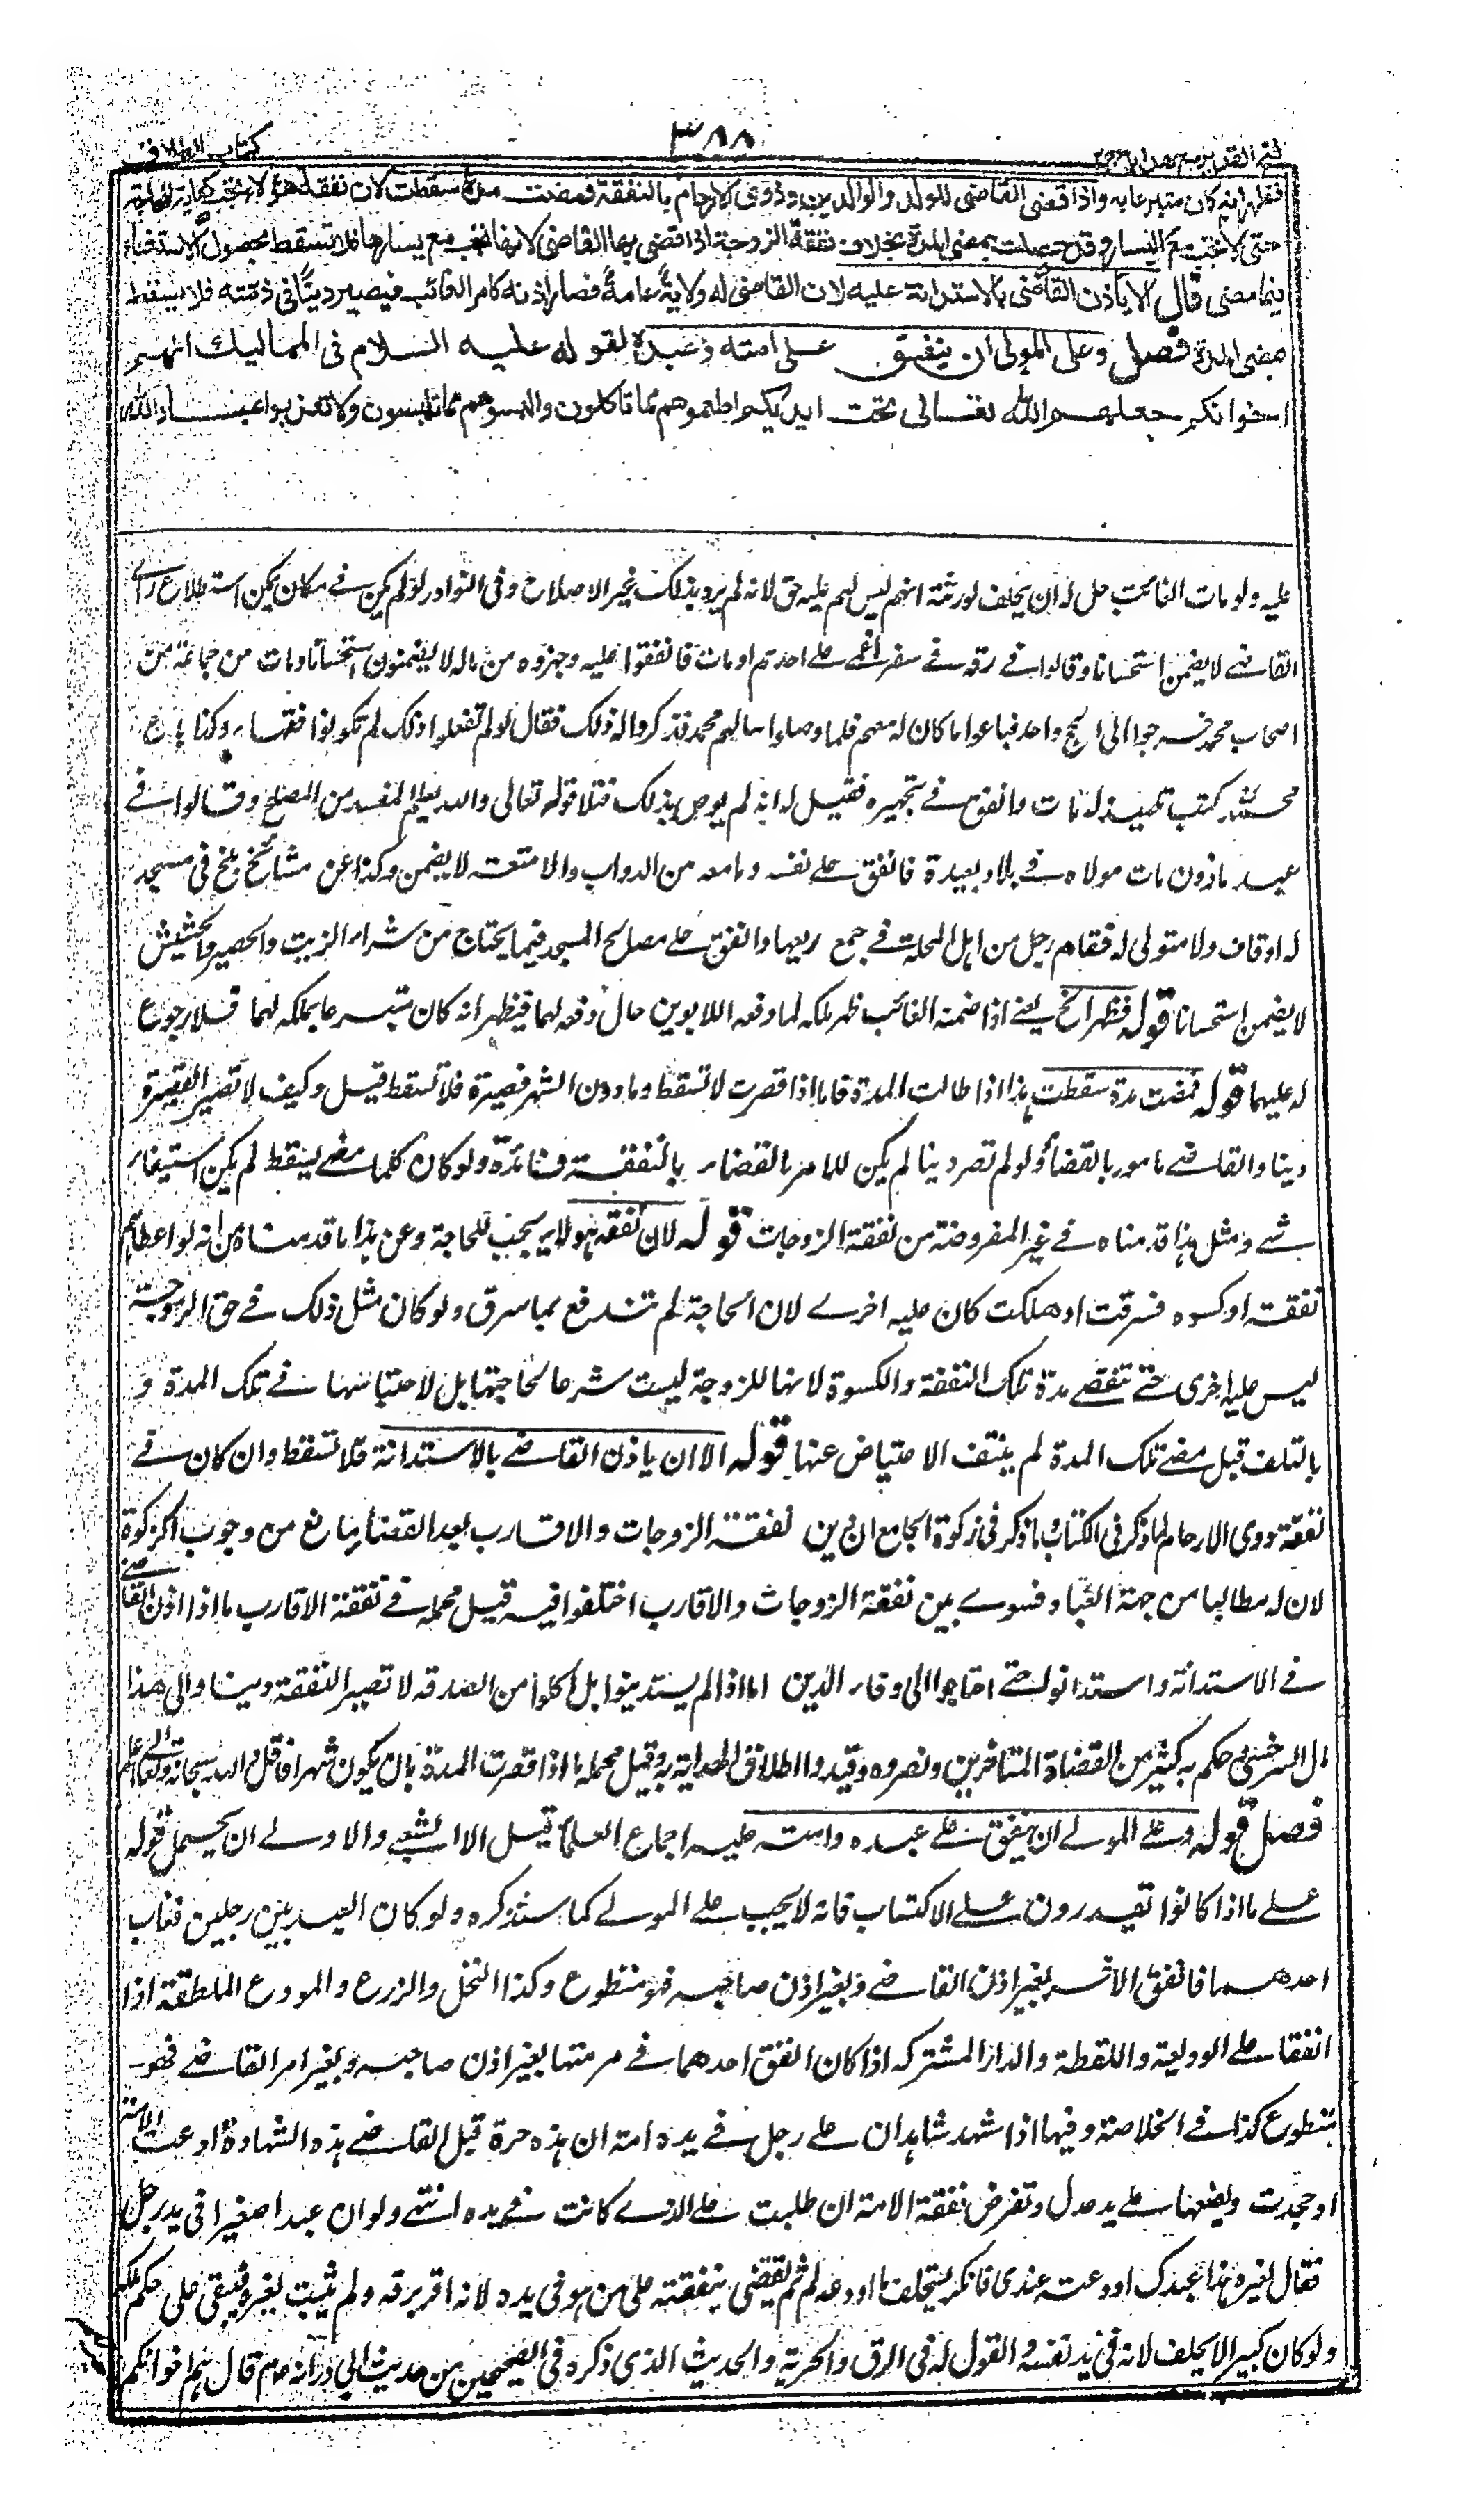 فتح القدير مع هداية ج ٢
٣٨٨
كتاب الطلاق
فظهر انه كان متبرعا به واذا قضى القاضى للولد والوالدين وذوى الارحام بالنفقة فمضت مدة سقطت لان نفقة هؤلاء تجب كفاية للحاجة
حتى لا تجب مع اليسار وقد حصلت بمضى المدة بخلاف نفقة الزوجة اذا قضى بها القاضى لانها تجب مع يسارها فلا تسقط بحصول الاستغناء
فيما مضى قال الا ان ياذن القاضى بالاستدانة عليه لان القاضى له ولاية عامة فصار اذنه كامر الغائب فيصير دينا فى ذمته فلا يسقط
بمضى المدة فصل وعلى المولى ان ينفق على امته وعبده لقوله عليه السلام فى المماليك انهم
اخوانكم جعلهم الله تعالى تحت ايديكم اطعموهم مما تاكلون والبسوهم مما تلبسون ولا تعذبوا عباد الله
عليه ولو مات الغائب حل له ان يحلف لورثته انهم ليس لهم عليه حق لانه لم يرد بذلك غير الاصلاح وفى النوادر لو لم يكن فى مكان يمكن استطلاع راى
القاضى لا يضمن استحسانا وقالوا فى رفقة فى سفر اغمى على احدهم او مات فانفقوا عليه وجهزوه من ماله لا يضمنون استحسانا ومات من جماعة من
اصحاب محمد خرجوا الى الحج واحد فباعوا ما كان له معهم فلما وصلوا سالهم محمد فذكروا له ذلك فقال لو لم تفعلوا ذلك لم تكونوا فقهاء وكذا باع
محمد كتب تلميذ له مات وانفق فى تجهيزه فقيل له انه لم يوص بذلك فتلا قوله تعالى والله يعلم المفسد من المصلح وقالوا فى
عبد ماذون مات مولاه فى بلاد بعيدة فانفق على نفسه وما معه من الدواب والامتعة لا يضمن وكذا عن مشائخ بلخ فى مسجد
له اوقاف ولا متولى له فقام رجل من اهل المحلة فى جمع ريعها وانفق على مصالح المسجد فيما يحتاج من شراء الزيت والحصير والحشيش
لا يضمن استحسانا قوله فظهر الخ يعنى اذا ضمنه الغائب ظهر ملكه لما دفعه الابوين حال دفعه لهما فيظهر انه كان متبرعا بملكه لهما فلا رجوع
له عليهما قوله فمضت مدة سقطت هذا اذا طالت المدة فاما اذا قصرت لا تسقط وما دون الشهر قصيرة فلا تسقط قيل وكيف لا تصير القصيرة
دينا والقاضى مامور بالقضاء ولو لم تصر دينا لم يكن للامر بالقضاء بالنفقة فائدة ولو كان كلما مضى يسقط لم يكن استيفاء
شئ ومثل هذا قدمناه فى غير المفروضة من نفقة الزوجات قوله لان نفقة هؤلاء تجب للحاجة وعن هذا ما قدمناه من انه لو اعطاهم
نفقة او كسوه فسرقت او هلكت كان عليه اخرى لان الحاجة لم تندفع بما سرق ولو كان مثل ذلك فى حق الزوجة
ليس عليه اخرى حتى تنقضى مدة تلك النفقة والكسوة لانها للزوجة ليست شرعا لحاجتها بل لاحتباسها فى تلك المدة و
بالتلف قبل مضى تلك المدة لم ينتف الاحتباس عنها قوله الا ان ياذن القاضى بالاستدانة فلا تسقط وان كان فى
نفقة ذوى الارحام لما ذكر فى الكتاب وما ذكر فى زكوة الجامع ان دين نفقة الزوجات والاقارب بعد القضاء مانع من وجوب الزكوة
لان له مطالبا من جهة العباد فسوى بين نفقة الزوجات والاقارب اختلفوا فيه قيل محمله فى نفقة الاقارب ما اذا اذن القاضى
فى الاستدانة واستدانوا حتى احتاجوا الى وفاء الدين اما اذا لم يستدينوا بل اكلوا من الصدقة لا تصير النفقة دينا والى هذا
مال السرخسى حكم به كثير من القضاة المتاخرين ونصروه وقيدوا اطلاق الهداية به وقيل محمله ما اذا قصرت المدة بان يكون شهرا فاقل والله سبحانه وتعالى اعلم
فصل قوله وعلى المولى ان ينفق على عبده وامته عليه اجماع العلماء قيل الا الشعبى والاولى ان يحمل قوله
على ما اذا كانوا يقدرون على الاكتساب فانه لا يجب على المولى كما سنذكره ولو كان العبد بين رجلين فغاب
احدهما فانفق الاخر بغير اذن القاضى وبغير اذن صاحبه فهو متطوع وكذا النخل والزرع والمودع الملتقط اذا
انفقا على الوديعة واللقطة والدار المشتركه اذا كان انفق احدهما فى مرمتها بغير اذن صاحبه وبغير امر القاضى فهو
متطوع كذا فى الخلاصة وفيها اذا شهد شاهدان على رجل فى يده امته ان هذه حرة قبل القاضى هذه الشهادة ادعت الامة
او جحدت ويضعها على يد عدل وتفرض نفقة الامة ان طلبت على الذى كانت فى يده انتهى ولو ان عبدا صغيرا فى يد رجل
فقال لغيره هذا عبدك اودعته عندى فانكر يستحلف ما اودعه ثم يقضى بنفقته على من هو فى يده لانه اقر برقه ولم يثبت لغيره فيبقى على حكم ملكه
ولو كان كبيرا لا يحلف لانه فى يد نفسه والقول له فى الرق والحرية والحديث الذى ذكره فى الصحيحين من حديث ابى ذر انه عم قال هم اخوانكم